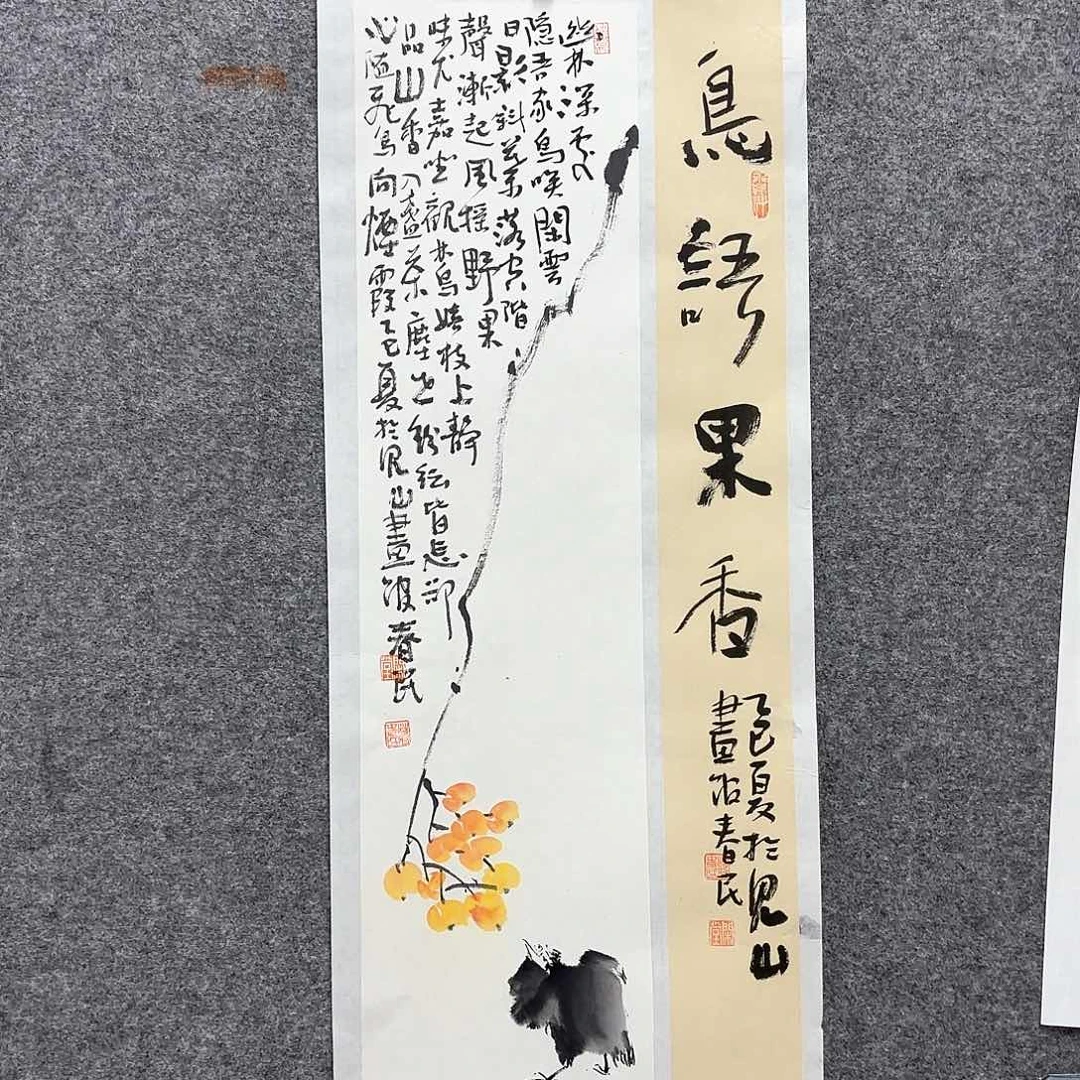 鳥語果香
乙巳夏於見山
畫春民
幽林深處
隱吾家鳥喚閑雲
日影斜葉落空階
聲漸起風摇野果
味尤嘉坐觀林鳥嬉枝上靜
品山香入盏茶塵世紛紜皆忘卻
心随飛鳥向煙霞乙巳夏於見山畫春民